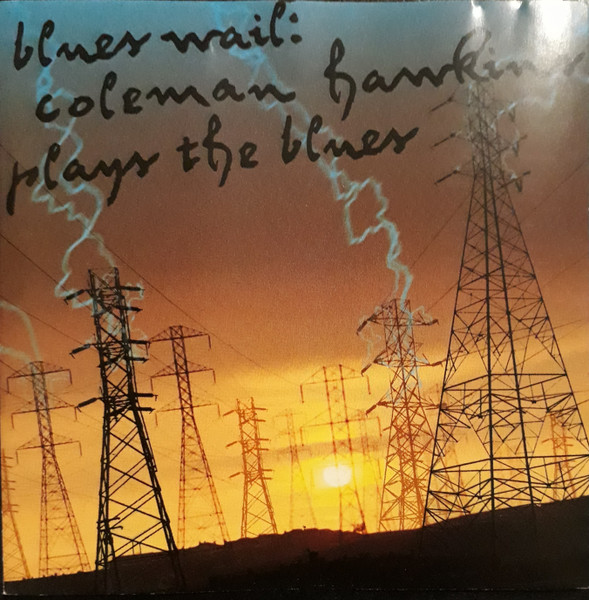 blues wail:
coleman hawkins
plays the blues